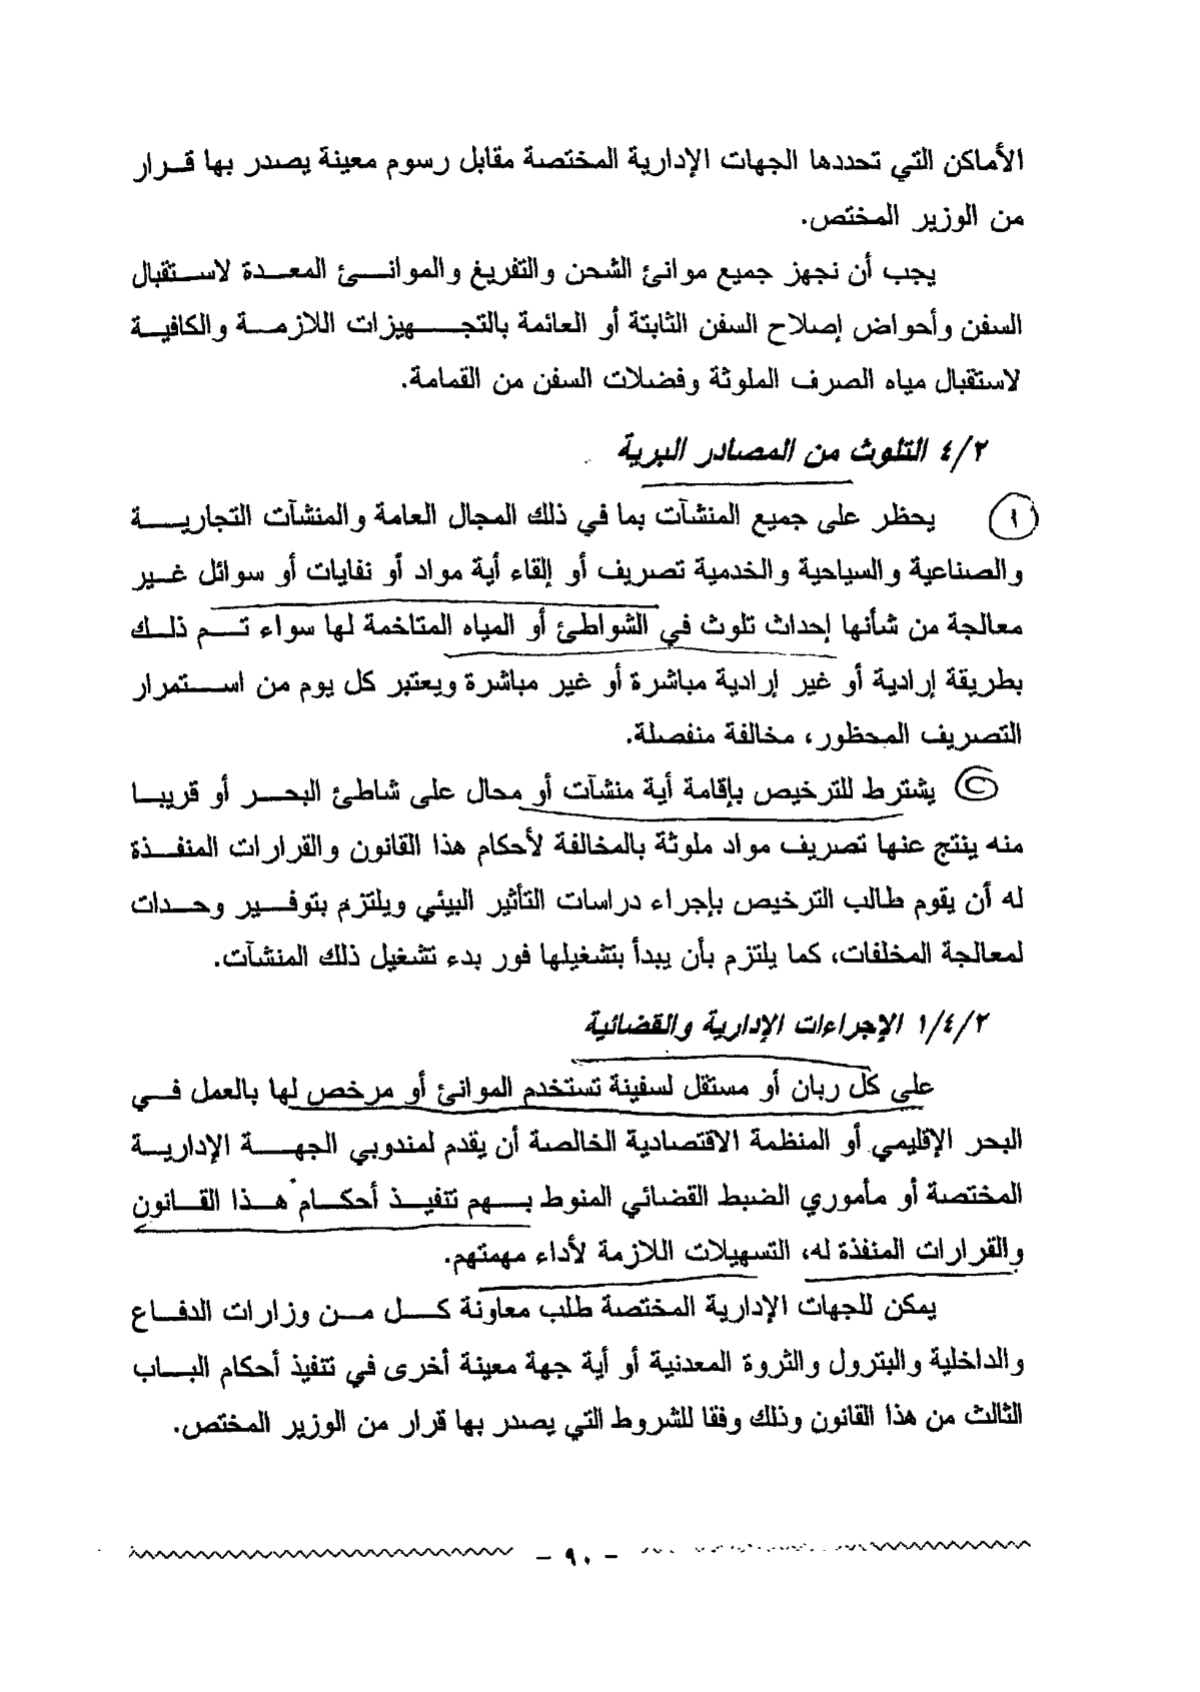 الأماكن التي تحددها الجهات الإدارية المختصة مقابل رسوم معينة يصدر بها قرار
من الوزير المختص.
يجب أن نجهز جميع موانئ الشحن والتفريغ والموانئ المعدة لاستقبال
السفن وأحواض إصلاح السفن الثابتة أو العائمة بالتجهيزات اللازمة والكافية
لاستقبال مياه الصرف الملوثة وفضلات السفن من القمامة.
٤/٢ التلوث من المصادر البرية
١ يحظر على جميع المنشآت بما في ذلك المجال العامة والمنشآت التجارية
والصناعية والسياحية والخدمية تصريف أو إلقاء أية مواد أو نفايات أو سوائل غير
معالجة من شأنها إحداث تلوث في الشواطئ أو المياه المتاخمة لها سواء تم ذلك
بطريقة إرادية أو غير إرادية مباشرة أو غير مباشرة ويعتبر كل يوم من استمرار
التصريف المحظور، مخالفة منفصلة.
يشترط للترخيص بإقامة أية منشآت أو محال على شاطئ البحر أو قريبا
منه ينتج عنها تصريف مواد ملوثة بالمخالفة لأحكام هذا القانون والقرارات المنفذة
له أن يقوم طالب الترخيص بإجراء دراسات التأثير البيئي ويلتزم بتوفير وحدات
لمعالجة المخلفات، كما يلتزم بأن يبدأ بتشغيلها فور بدء تشغيل ذلك المنشآت.
١/٤/٢ الإجراءات الإدارية والقضائية
على كل ربان أو مستقل لسفينة تستخدم الموانئ أو مرخص لها بالعمل في
البحر الإقليمي أو المنظمة الاقتصادية الخالصة أن يقدم لمندوبي الجهة الإدارية
المختصة أو مأموري الضبط القضائي المنوط بهم تنفيذ أحكام هذا القانون
والقرارات المنفذة له، التسهيلات اللازمة لأداء مهمتهم.
يمكن للجهات الإدارية المختصة طلب معاونة كل من وزارات الدفاع
والداخلية والبترول والثروة المعدنية أو أية جهة معينة أخرى في تنفيذ أحكام الباب
الثالث من هذا القانون وذلك وفقا للشروط التي يصدر بها قرار من الوزير المختص.
- ٩٠ -